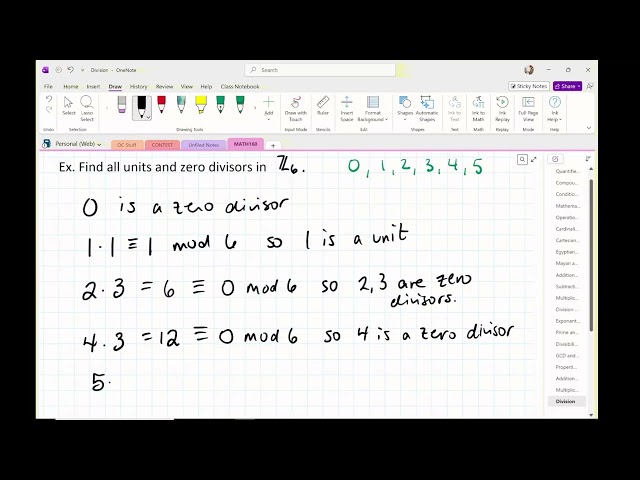 Division - OneNote
Search
File Home Insert Draw History Review View Help Class Notebook
Sticky Notes Share
Undo Select Lasso Select Add Draw with Touch Insert Space Format Background Shapes Automatic Shapes Ink to Shape Ink to Text Ink to Math Ink Replay
Undo Selection Drawing Tools Insert Edit Convert Replay
Personal (Web) OC Stuff CONTEST Unfiled Notes MATH163
Ex. Find all units and zero divisors in ℤ₆. 0, 1, 2, 3, 4, 5
0 is a zero divisor
1·1 ≡ 1 mod 6 so 1 is a unit
2·3 = 6 ≡ 0 mod 6 so 2,3 are zero divisors.
4·3 = 12 ≡ 0 mod 6 so 4 is a zero divisor
5·
Quantifie...
Compou...
Condition...
Mathema...
Operation...
Cardinalit...
Cartesian...
Egyptian...
Mayan a...
Addition ...
Subtracti...
Multiplic...
Division
Exponent...
Prime an...
Divisibili...
GCD and ...
Properti...
Addition ...
Multiplic...
Division